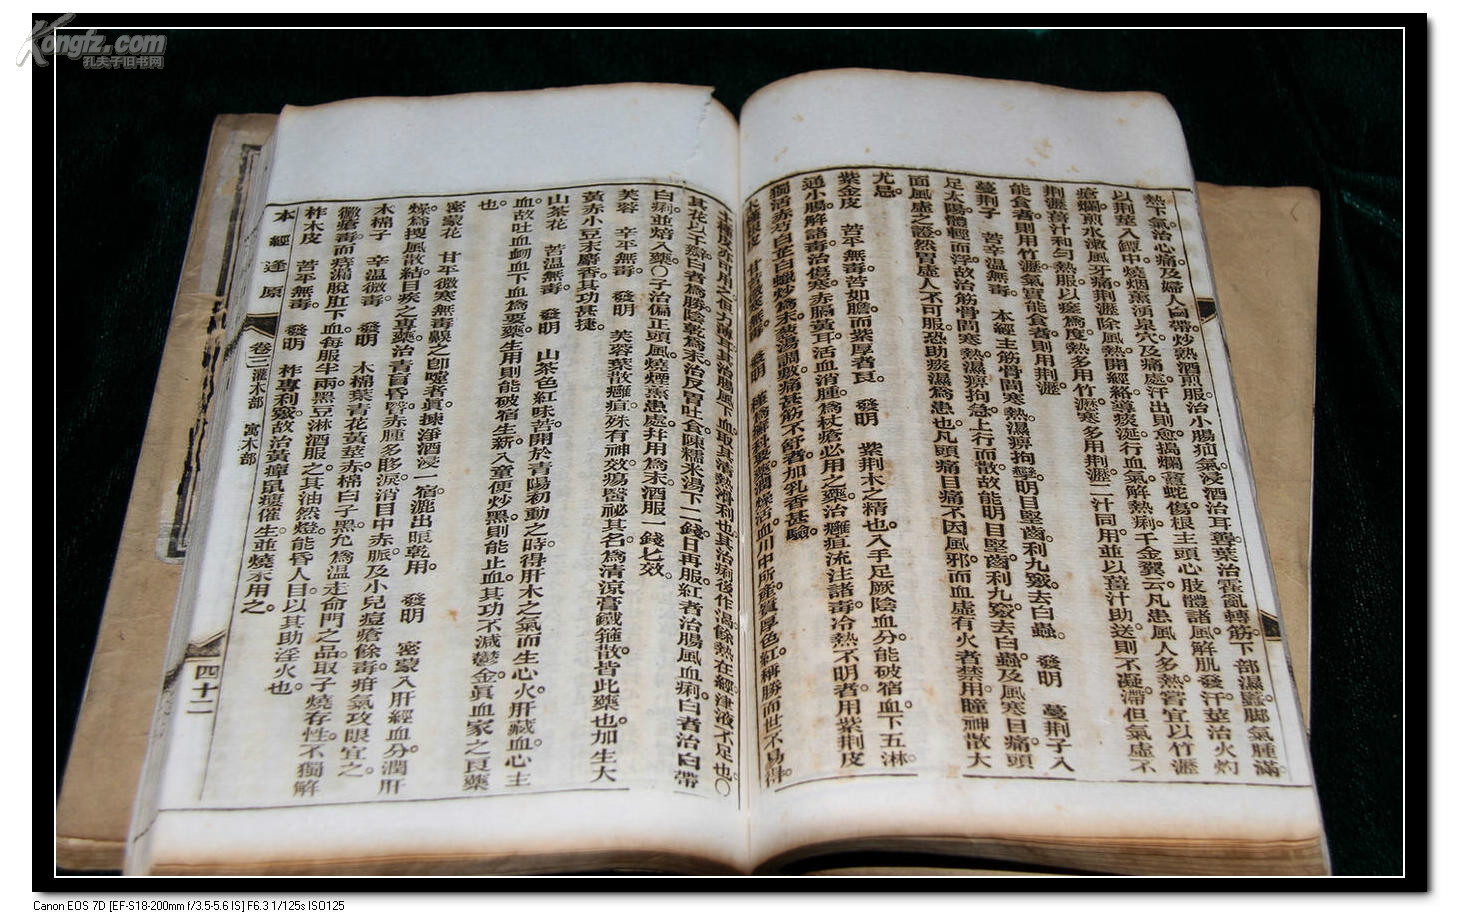 Kongfz.com
孔夫子旧书网
熱下氣治心痛及婦人白帶炒熟酒煎服治小腸疝氣浸酒治耳聾葉治霍亂轉筋下部濕䘌腳氣腫滿
以荆莖入罈中燒烟薰湧泉穴及痛處汗出則愈搗爛蓋蛇傷根主頭心肢體諸風解肌發汗莖治火灼
瘡爛煎水漱風牙痛荆瀝除風熱開經絡導痰涎行血氣解熱痢千金翼云凡患風人多熱常宜以竹瀝
荆瀝薑汁和勻熱服以瘥為度熱多用竹瀝寒多用荆瀝二汁同用並以薑汁助送則不凝滯但氣虛不
能食者則用竹瀝氣實能食者則用荆瀝
蔓荆子 苦辛溫無毒 本經主筋骨間寒熱濕痹拘攣明目堅齒利九竅去白蟲 發明 蔓荆子入
足太陽體輕而浮故治筋骨間寒熱濕痹拘急上行而散故能明目堅齒利九竅去白蟲及風寒目痛頭
面風虛之證然胃虛人不可服恐助痰濕為患也凡頭痛目痛不因風邪而血虛有火者禁用瞳神散大
尤忌
紫金皮 苦平無毒苦如膽而紫厚者良 發明 紫荆木之精也入手足厥陰血分能破宿血下五淋
通小腸解諸毒治傷寒赤膈黃耳活血消腫為杖瘡必用之藥治癰疽流注諸毒冷熱不明者用紫荆皮
獨活赤芍白芷白蠟炒為末葱湯調敷痛甚筋不舒者加乳香甚驗
木槿根皮 甘平微寒無毒 發明 槿為癬科要藥潤燥活血川中所產質厚色紅稱勝而世不易得
土槿皮亦可用之但力薄耳其治腸風下血取其清熱滑利也其治痢後作渴餘熱在經津液不足也〇
其花以千瓣白者為勝陰乾為末治反胃吐食陳糯米湯下二錢日再服紅者治腸風血痢白者治白帶
白痢並焙入藥〇子治偏正頭風燒煙熏患處并用為末酒服一錢匕效
芙蓉 辛平無毒 發明 芙蓉葉散癰疽殊有神效瘍醫祕其名為清涼膏鐵箍散皆此藥也加生大
黃赤小豆末麝香其功甚捷
山茶花 苦溫無毒 發明 山茶色紅味苦開於青陽初動之時得肝木之氣而生心火肝藏血心主
血故吐血衂血下血為要藥生用則能破宿生新入童便炒黑則能止血其功不減鬱金真血家之良藥
也
密蒙花 甘平微寒無毒觀之卽嚏者真揀淨酒浸一宿漉出㫰乾用 發明 密蒙入肝經血分潤肝
燥爲搜風散結目疾之專藥治青盲昏翳赤腫多眵淚消目中赤脈及小兒痘瘡餘毒疳氣攻眼宜之
木棉子 辛溫微毒 發明 木棉葉青花黃莖赤棉白子黑允為溫走命門之品取子燒存性不獨解
黴瘡毒而痔漏脫肛下血每服半兩黑豆淋酒服之其油然燈能昏人目以其助淫火也
柞木皮 苦平無毒 發明 柞專利竅故治黃癉鼠瘻催生並燒末用之
本經逢原 卷三 灌木部 寓木部 四十二
Canon EOS 7D [EF-S18-200mm f/3.5-5.6 IS] F6.3 1/125s ISO125